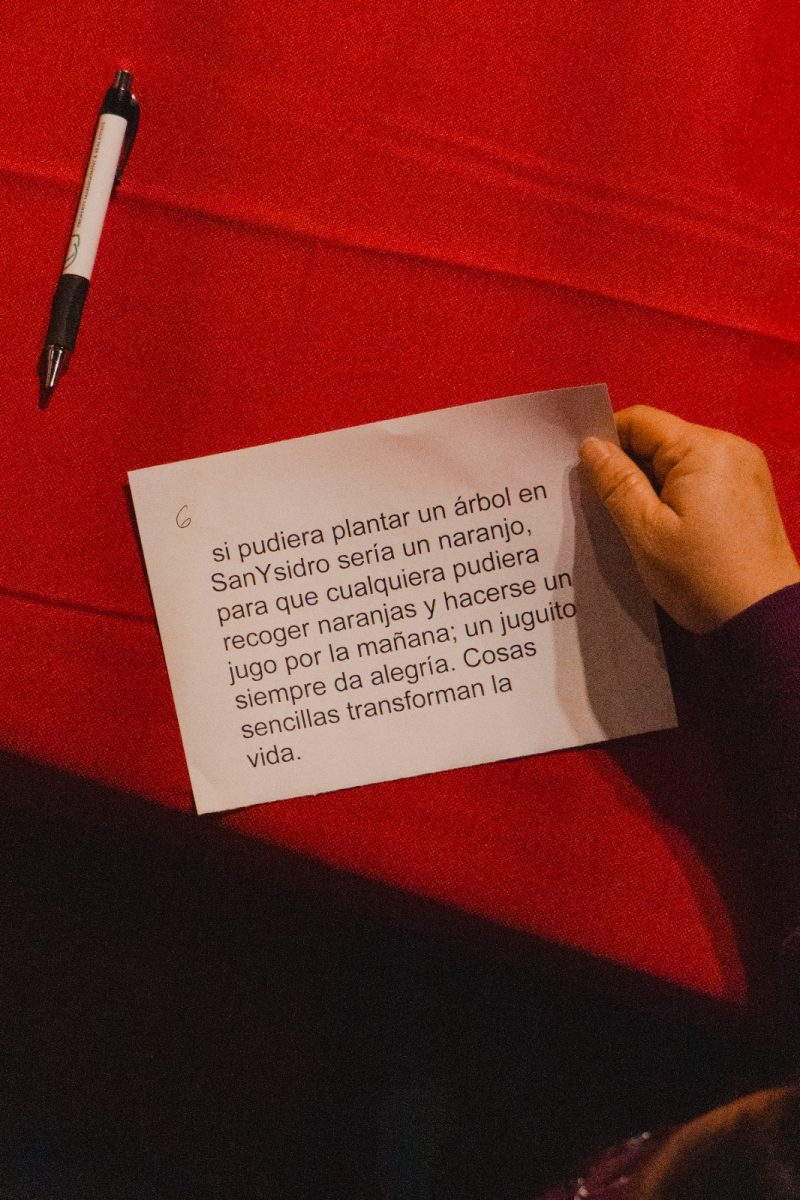 6
si pudiera plantar un árbol en
SanYsidro sería un naranjo,
para que cualquiera pudiera
recoger naranjas y hacerse un
jugo por la mañana; un juguito
siempre da alegría. Cosas
sencillas transforman la
vida.